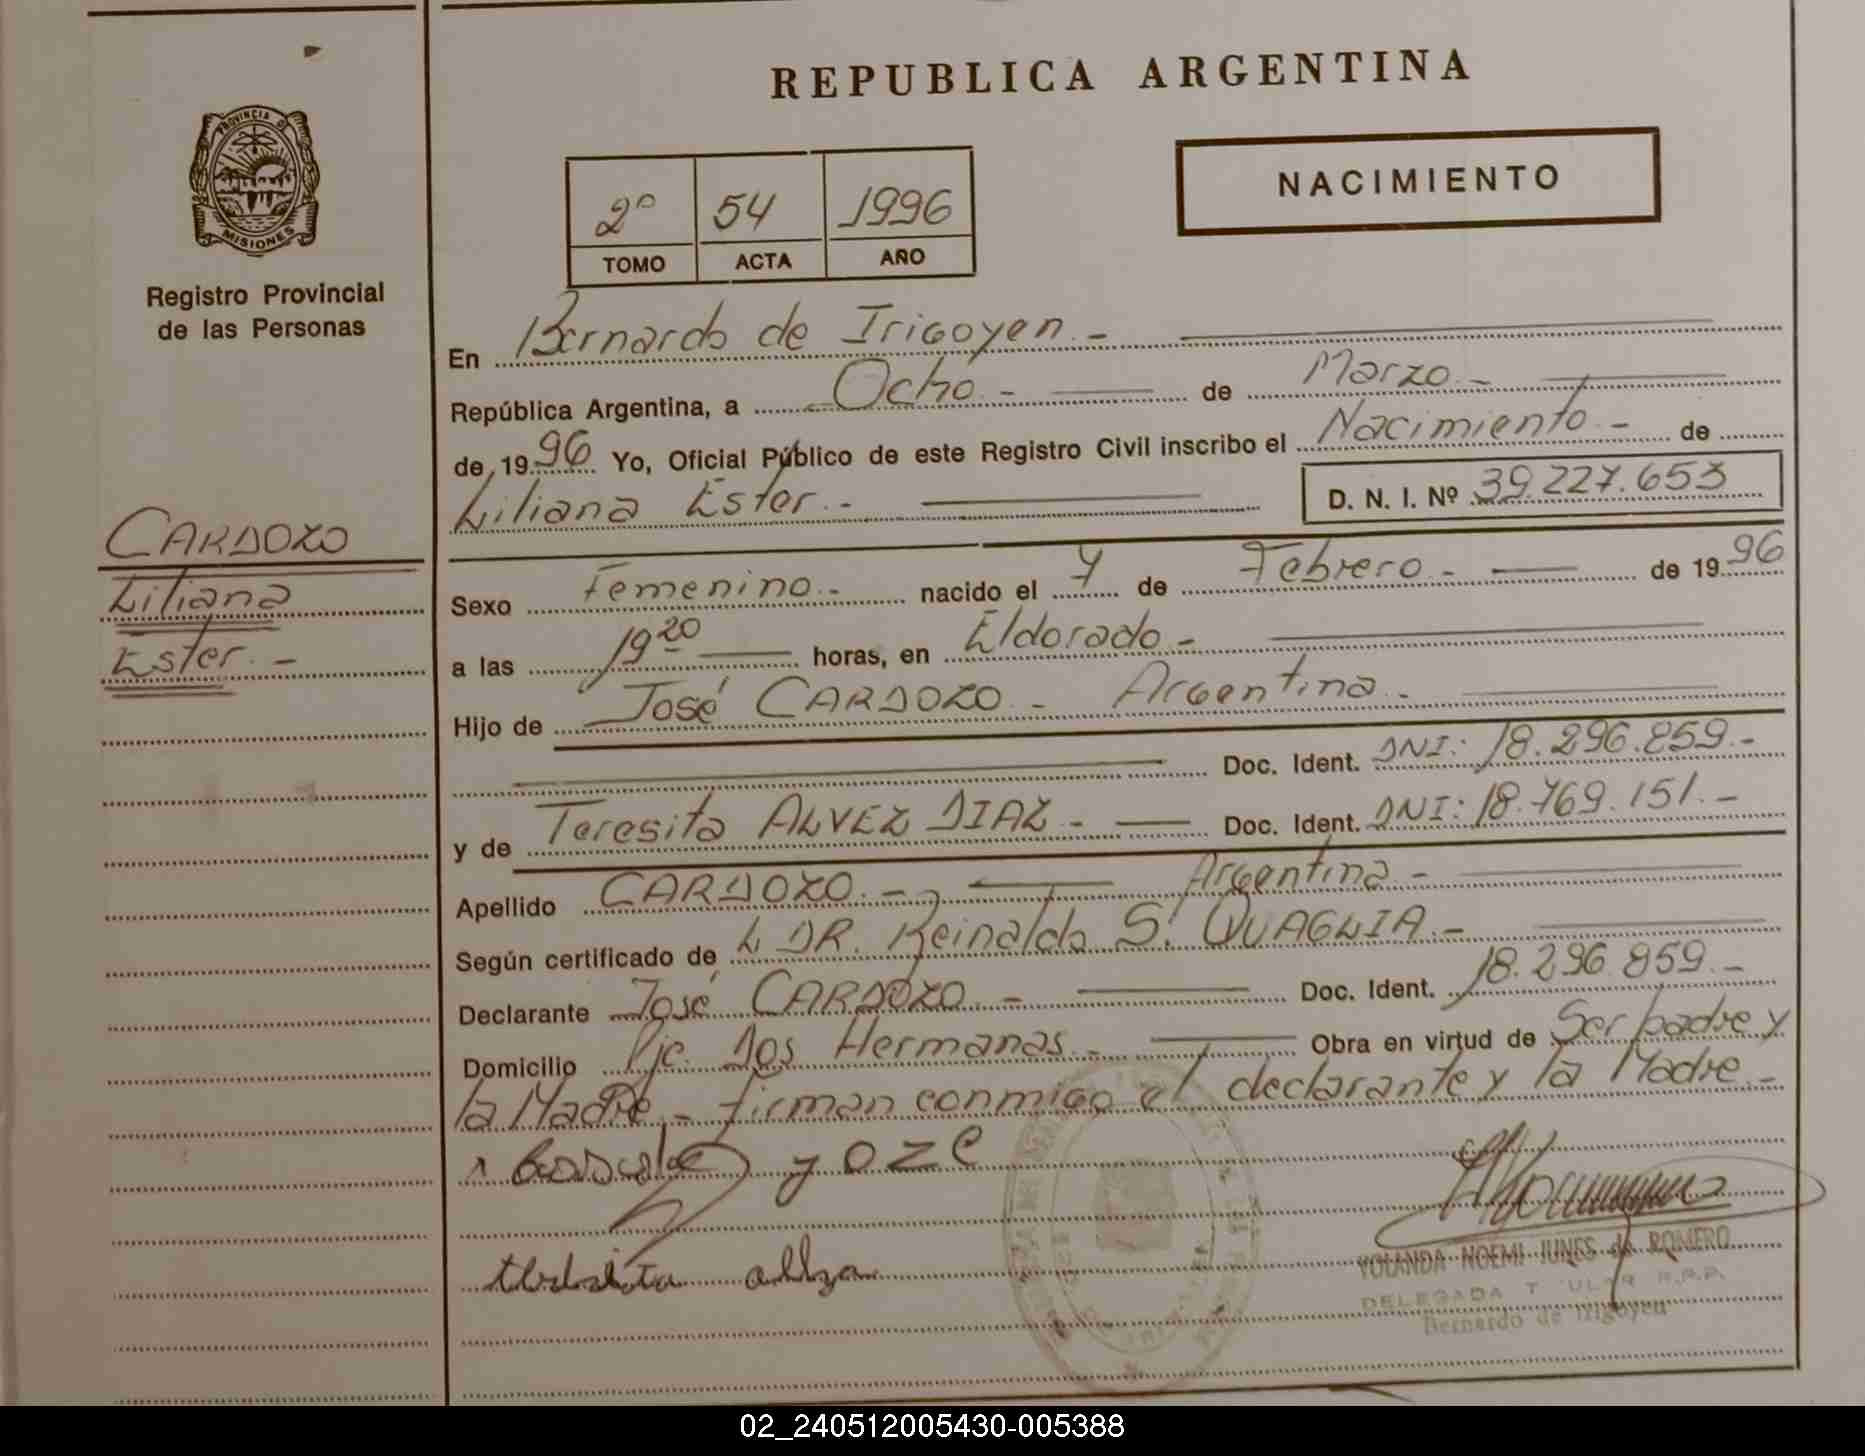 REPUBLICA ARGENTINA
PROVINCIA DE
MISIONES
Registro Provincial
de las Personas
NACIMIENTO
2º 54 1996
TOMO ACTA AÑO
En Bernardo de Irigoyen.-
República Argentina, a Ocho.- de Marzo.-
de 1996 Yo, Oficial Público de este Registro Civil inscribo el Nacimiento.- de
Liliana Ester.- D. N. I. Nº 39.227.653
CARDOZO
Liliana
Ester.-
Sexo Femenino.- nacido el 7 de Febrero.- de 1996
a las 19 20 horas, en Eldorado.-
Hijo de José CARDOZO.- Argentina.-
Doc. Ident. DNI: 18.296.859.-
y de Teresita ALVEZ DIAZ.- Doc. Ident. DNI: 18.769.151.-
Argentina.-
Apellido CARDOZO.-
Según certificado de L DR. Reinaldo S. QUAGLIA.-
Declarante José CARDOZO.- Doc. Ident. 18.296.859.-
Domicilio Pje. Dos Hermanas.- Obra en virtud de Ser padre y
la Madre.- firman conmigo el declarante y la Madre.-
YOLANDA NOEMI JUNES de ROMERO
DELEGADA TITULAR R.P.P.
Bernardo de Irigoyen
02_240512005430-005388